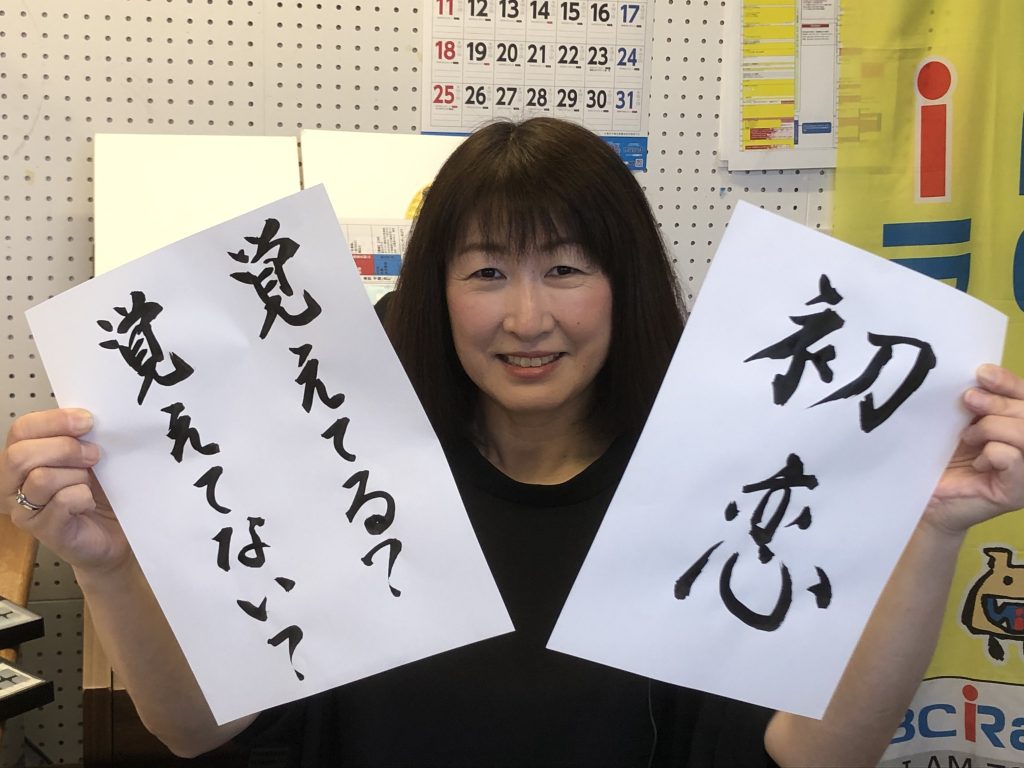 11 12 13 14 15 16 17
18 19 20 21 22 23 24
25 26 27 28 29 30 31
初恋
覚えてる?
覚えてない?
i
BCiRa
I AM